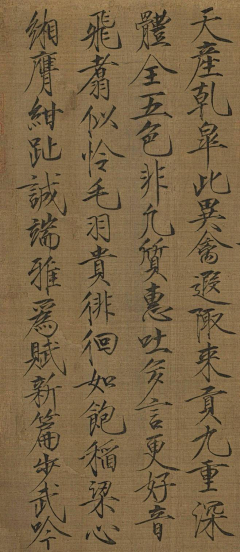 天產乾皋此異禽遐陬來貢九重深
體全五色非凡質惠吐多言更好音
飛翥似怜毛羽貴徘徊如飽稻粱心
緗膺紺趾誠端雅爲賦新篇步武吟